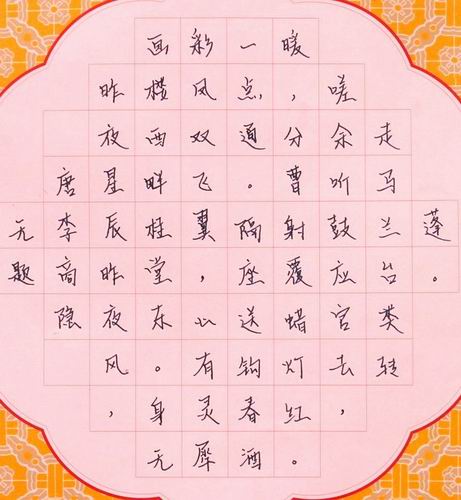 无题
唐李商隐
昨夜星辰昨夜风，
画楼西畔桂堂东。身无
彩凤双飞翼，心有灵犀
一点通。隔座送钩春酒
暖，分曹射覆蜡灯红。
嗟余听鼓应官去，
走马兰台类转
蓬。